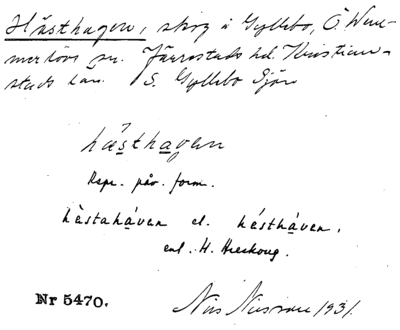 Hästhagen, skog i Gyllebo, Ö. Wem-
merlövs sn. Järrestads hd. Kristian-
stads län. S. Gyllebo Sjön
hästhagen
Repr. påv. form.
hèstaháven el. hésthàven.
enl. H.
Nr 5470.
Nils 1931.